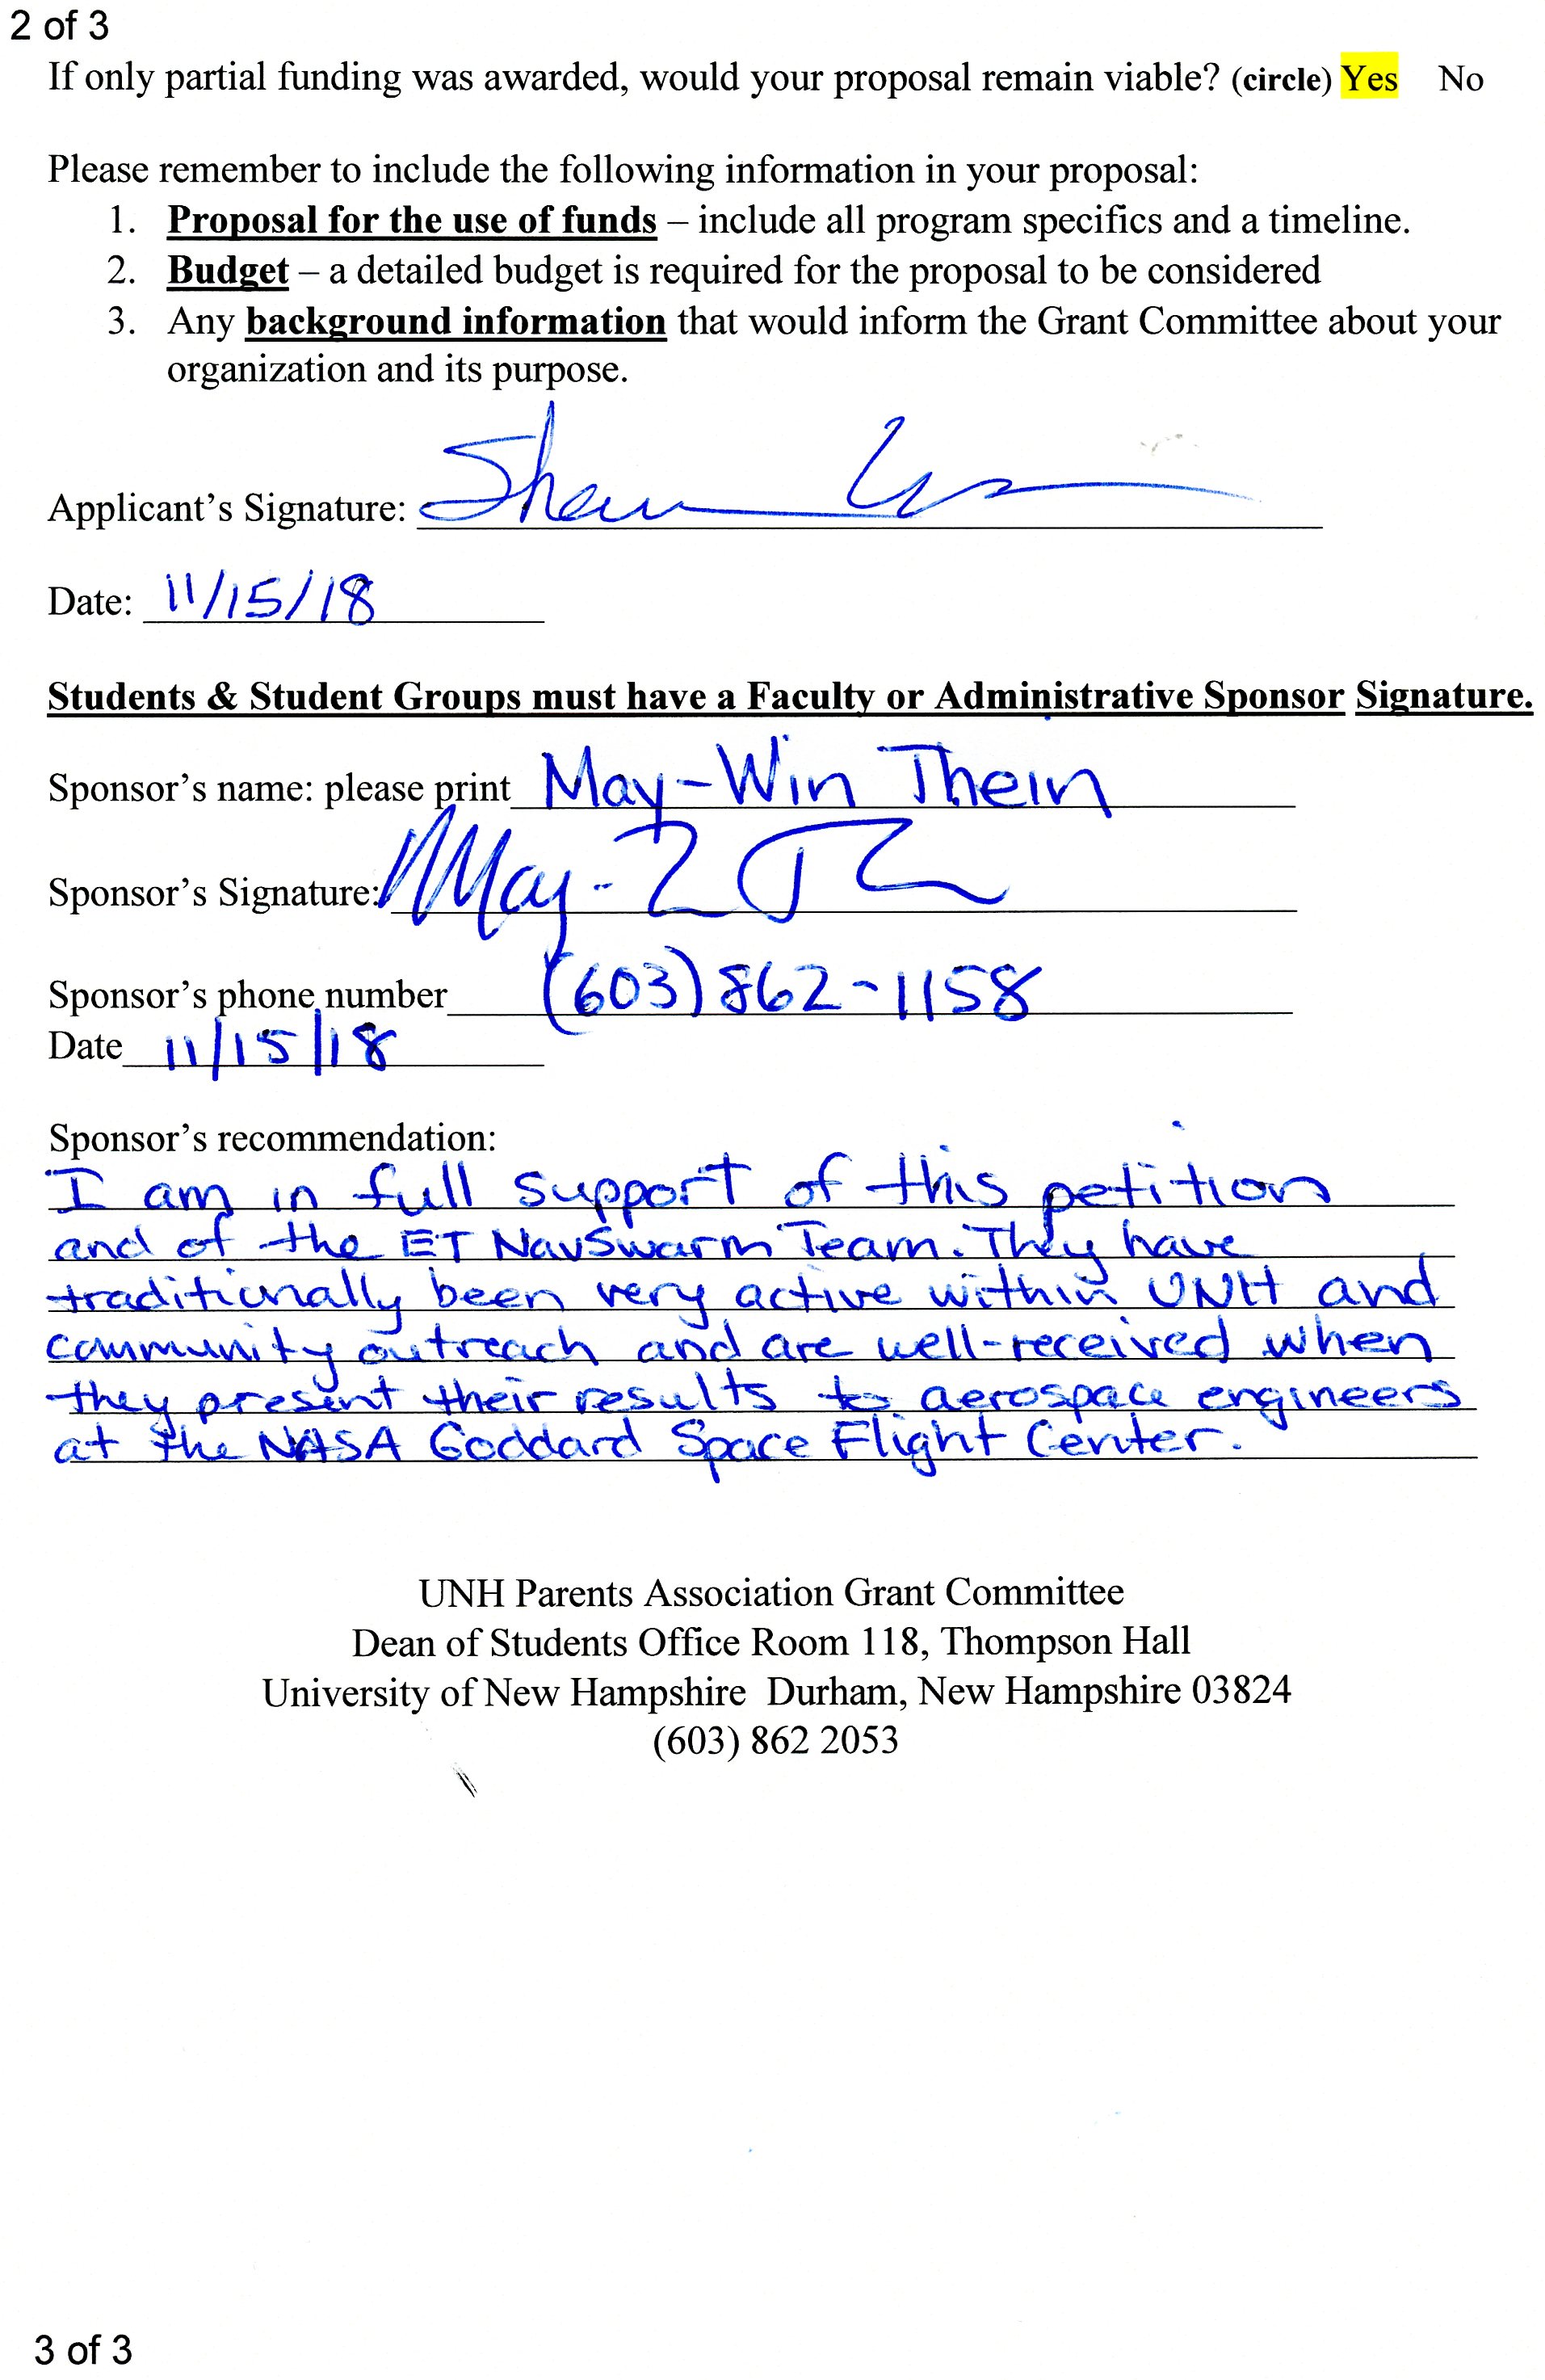 2 of 3
If only partial funding was awarded, would your proposal remain viable? (circle) Yes No
Please remember to include the following information in your proposal:
1. Proposal for the use of funds – include all program specifics and a timeline.
2. Budget – a detailed budget is required for the proposal to be considered
3. Any background information that would inform the Grant Committee about your
organization and its purpose.
Applicant's Signature:
Date: 11/15/18
Students & Student Groups must have a Faculty or Administrative Sponsor Signature.
Sponsor's name: please print May-Win Thein
Sponsor's Signature: May-
Sponsor's phone number (603) 862-1158
Date 11/15/18
Sponsor's recommendation:
I am in full support of this petition
and of the ET NavSwarm Team. They have
traditionally been very active within UNH and
community outreach and are well-received when
they present their results to aerospace engineers
at the NASA Goddard Space Flight Center.
UNH Parents Association Grant Committee
Dean of Students Office Room 118, Thompson Hall
University of New Hampshire Durham, New Hampshire 03824
(603) 862 2053
3 of 3